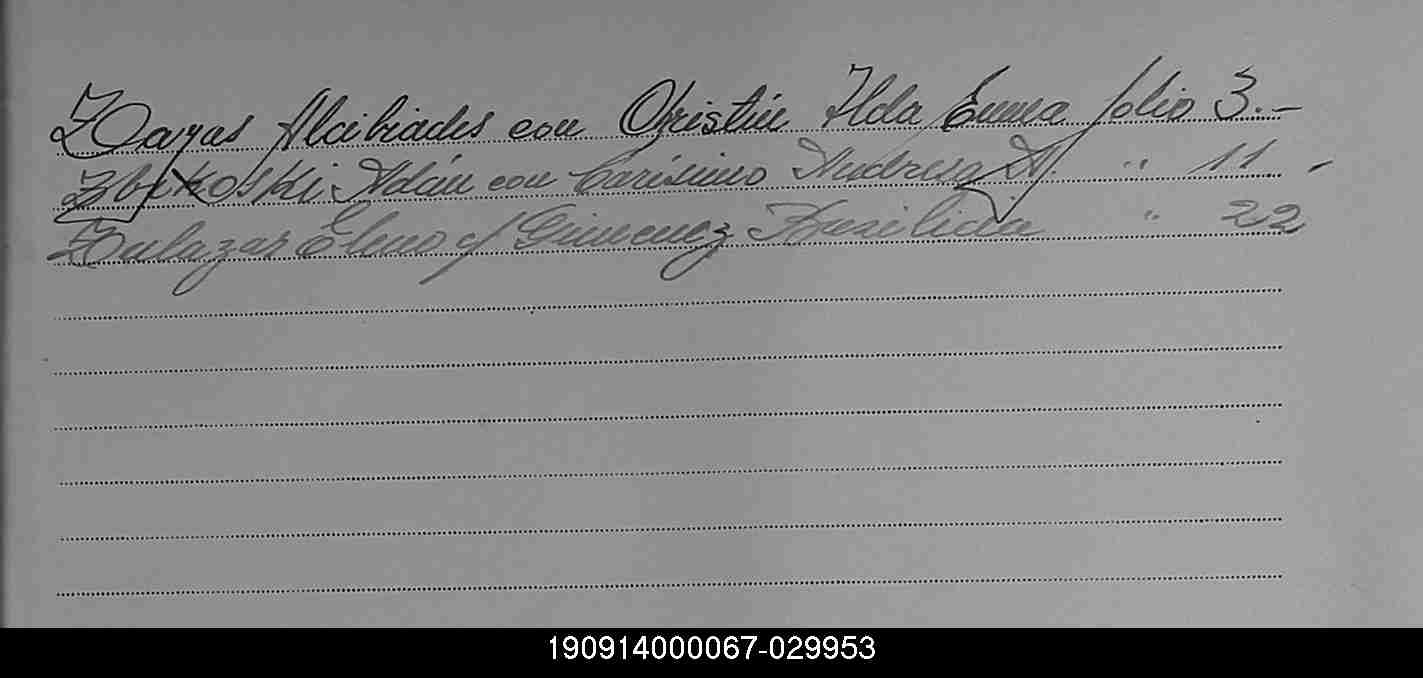 Zayas Alcibiades con Cristin Ilda Emma folio 3.-
Zbikoski Adán con Carísimo Andresa A. " 11 -
Zulazar Eleno c/ Gimenez Basilicia " 22
190914000067-029953